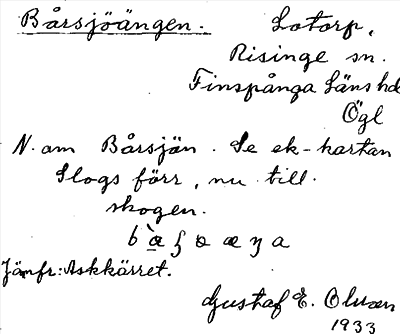 Bårsjöängen. Lotorp,
Risinge sn.
Finspånga Läns hd
Ögl
N. om Bårsjön. Se ek-kartan
Slogs förr, nu till
skogen.
Jämfr: Askkärret.
Gustaf E. Olsson
1933